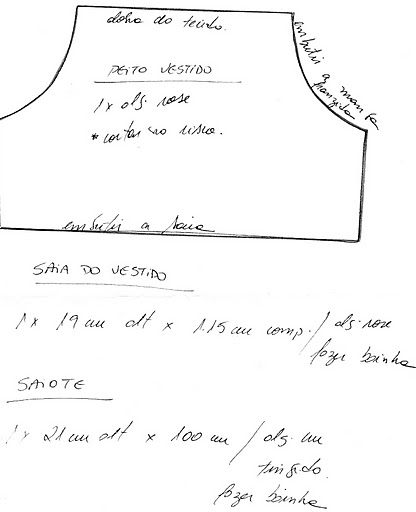 dobra do tecido.
embutir a manga
franzida
PEITO VESTIDO
1x alg. rose
* cortar no risco.
embutir a saia
SAIA DO VESTIDO
1x 19 cm alt x 115 cm comp. / alg. rose
fazer bainha
SAIOTE
1x 21 cm alt x 100 cm / alg. cru
tingido.
fazer bainha